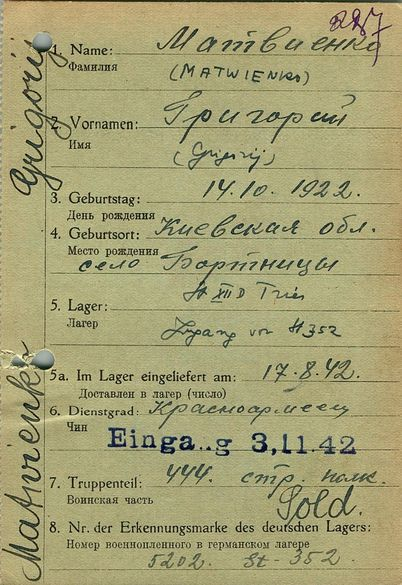 887
1. Name: Матвиенко
Фамилия
(MATWIENKO)
2. Vornamen: Григорий
Имя
(Grigorij)
3. Geburtstag: 14.10.1922.
День рождения
4. Geburtsort: Киевская обл.
Место рождения
село Бортницы
St XII D Trier
5. Lager:
Лагер
Zugang von St 352
5a. Im Lager eingeliefert am: 17.8.42.
Доставлен в лагер (число)
6. Dienstgrad: Красноармеец
Чин
Eingang 3.11.42
7. Truppenteil: 444. стр полк.
Воинская часть
Sold.
8. Nr. der Erkennungsmarke des deutschen Lagers:
Номер военнопленного в германском лагере
5202. St-352
Matwienko Grigorij